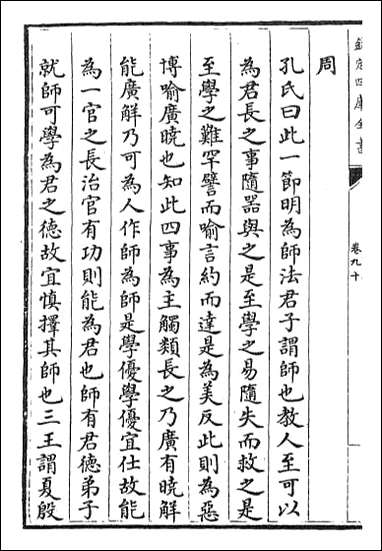 欽定四庫全書
卷九十
周
孔氏曰此一節明為師法君子謂師也教人至可以
為君長之事隨器與之是至學之易隨失而救之是
至學之難罕譬而喻言約而達是為美反此則為惡
博喻廣曉也知此四事為主觸類長之乃廣有曉解
能廣解乃可為人作師為師是學優學優宜仕故能
為一官之長治官有功則能為君也師有君德弟子
就師可學為君之德故宜慎擇其師也三王謂夏殷